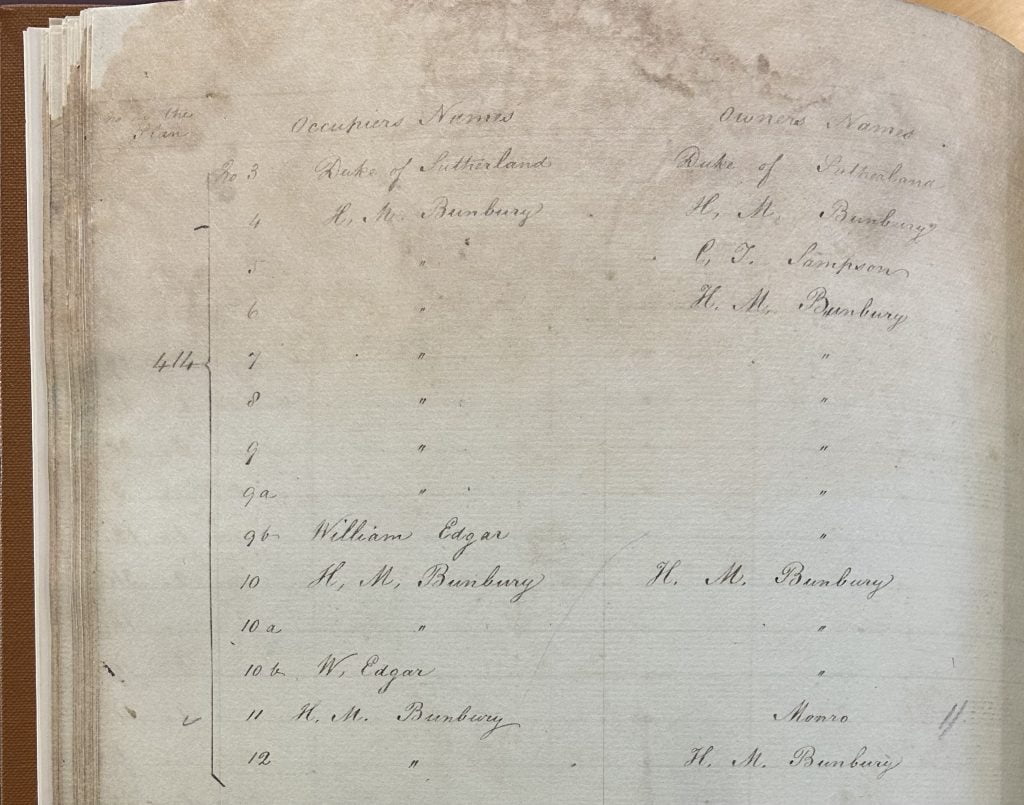 No in the
Plan
Occupiers Names Owners Names
No 3 Duke of Sutherland Duke of Sutherland
4 H. M. Bunbury H. M. Bunbury
5 " C. T. Sampson
6 " H. M. Bunbury
414 7 " "
8 " "
9 " "
9a " "
9b William Edgar "
10 H. M. Bunbury H. M. Bunbury
10a " "
10b W. Edgar "
11 H. M. Bunbury Monro
12 " H. M. Bunbury